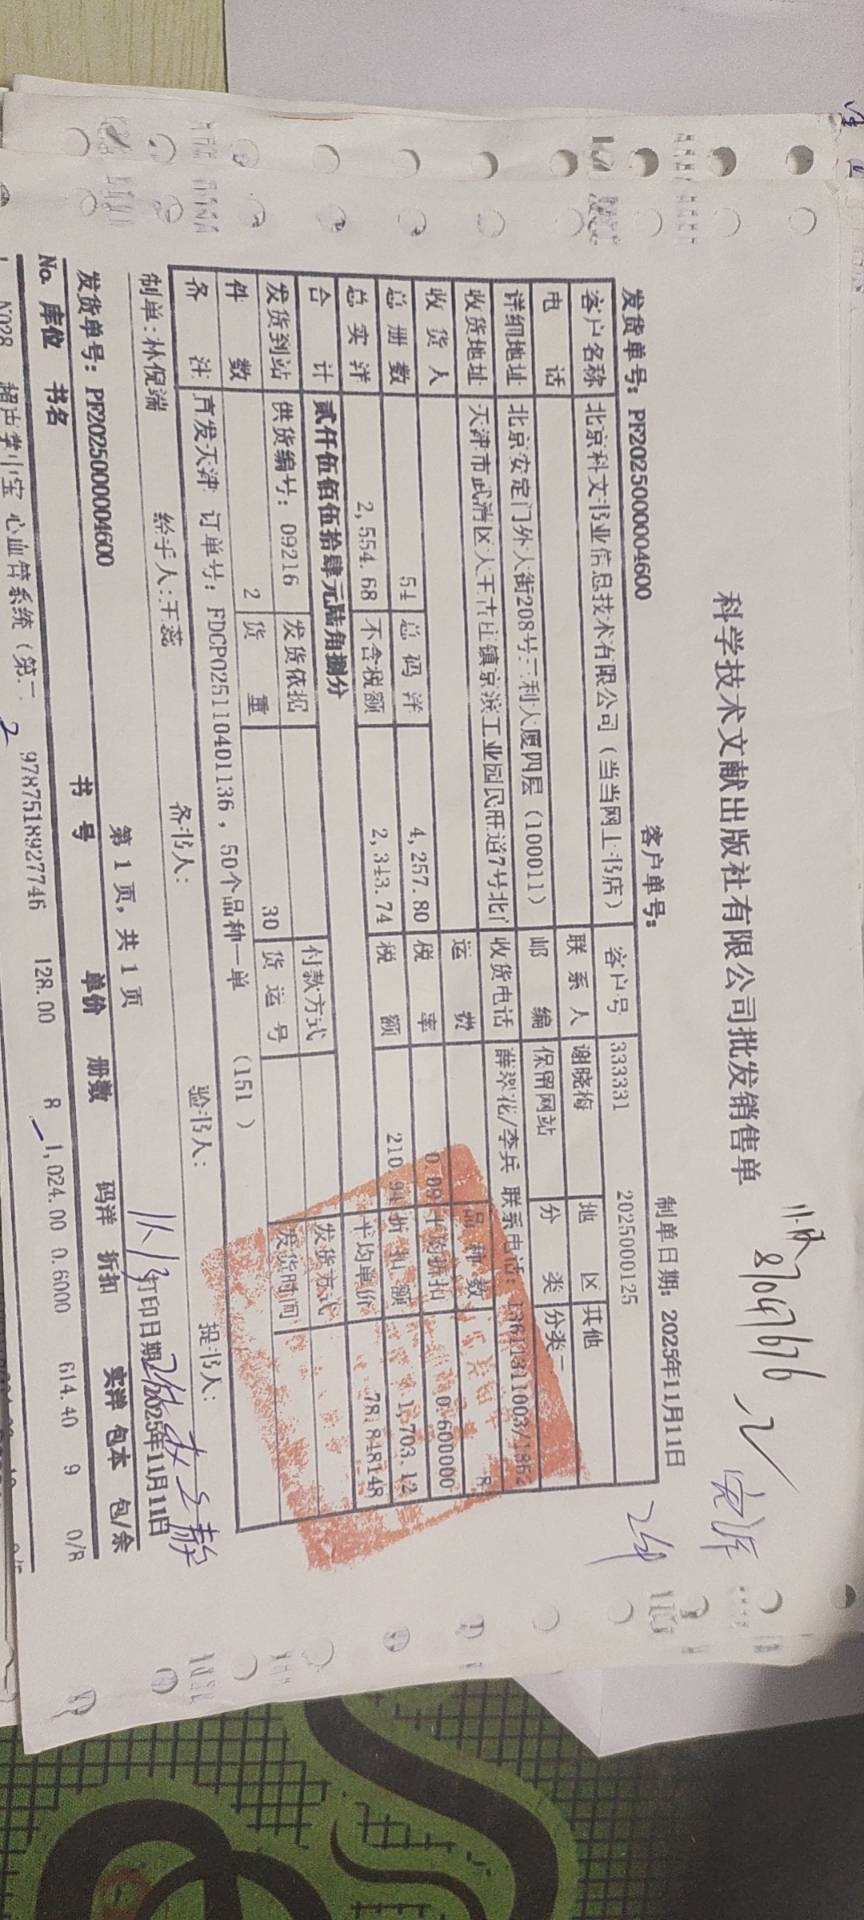 科学技术文献出版社有限公司批发销售单
发货单号: PF2025000004600 客户单号: 制单日期: 2025年11月11日
客户名称 北京科文书业信息技术有限公司（当当网上书店） 客户号 333331 2025000125
电 话 联系人 谢晓梅 地 区 其他
详细地址 北京安定门外大街208号三利大厦四层（100011） 邮 编 保留网站 分 类 分类二
收货地址 天津市武清区大王古庄镇京滨工业园民旺道7号北门 收货电话 薛翠花/李兵 联系电话:
收 货 人 运 费 品 种 数 8
总 册 数 54 总 码 洋 4,257.80 税 率 0.09 平均折扣 0.600000
总 实 洋 2,554.68 不含税额 2,343.74 税 额 210.94 折 扣 额 1,703.12
合 计 贰仟伍佰伍拾肆元陆角捌分 平均单价 78.848148
发货到站 供货编号: 09216 发货依据 付款方式 发货方式
件 数 2 货 重 30 货 运 号 发货时间
备 注 直发天津 订单号: FDCP025110401136，50个品种一单 （151 ）
制单: 林倪端 经手人: 王蕊 备书人: 验书人: 提书人:
第 1 页, 共 1 页 打印日期 2025年11月11日
发货单号: PF2025000004600
No. 库位 书名 书 号 单价 册数 码洋 折扣 实洋 包本 包/余
1 N028 超声掌中宝 心血管系统（第二 9787518927746 128.00 8 1,024.00 0.6000 614.40 9 0/8